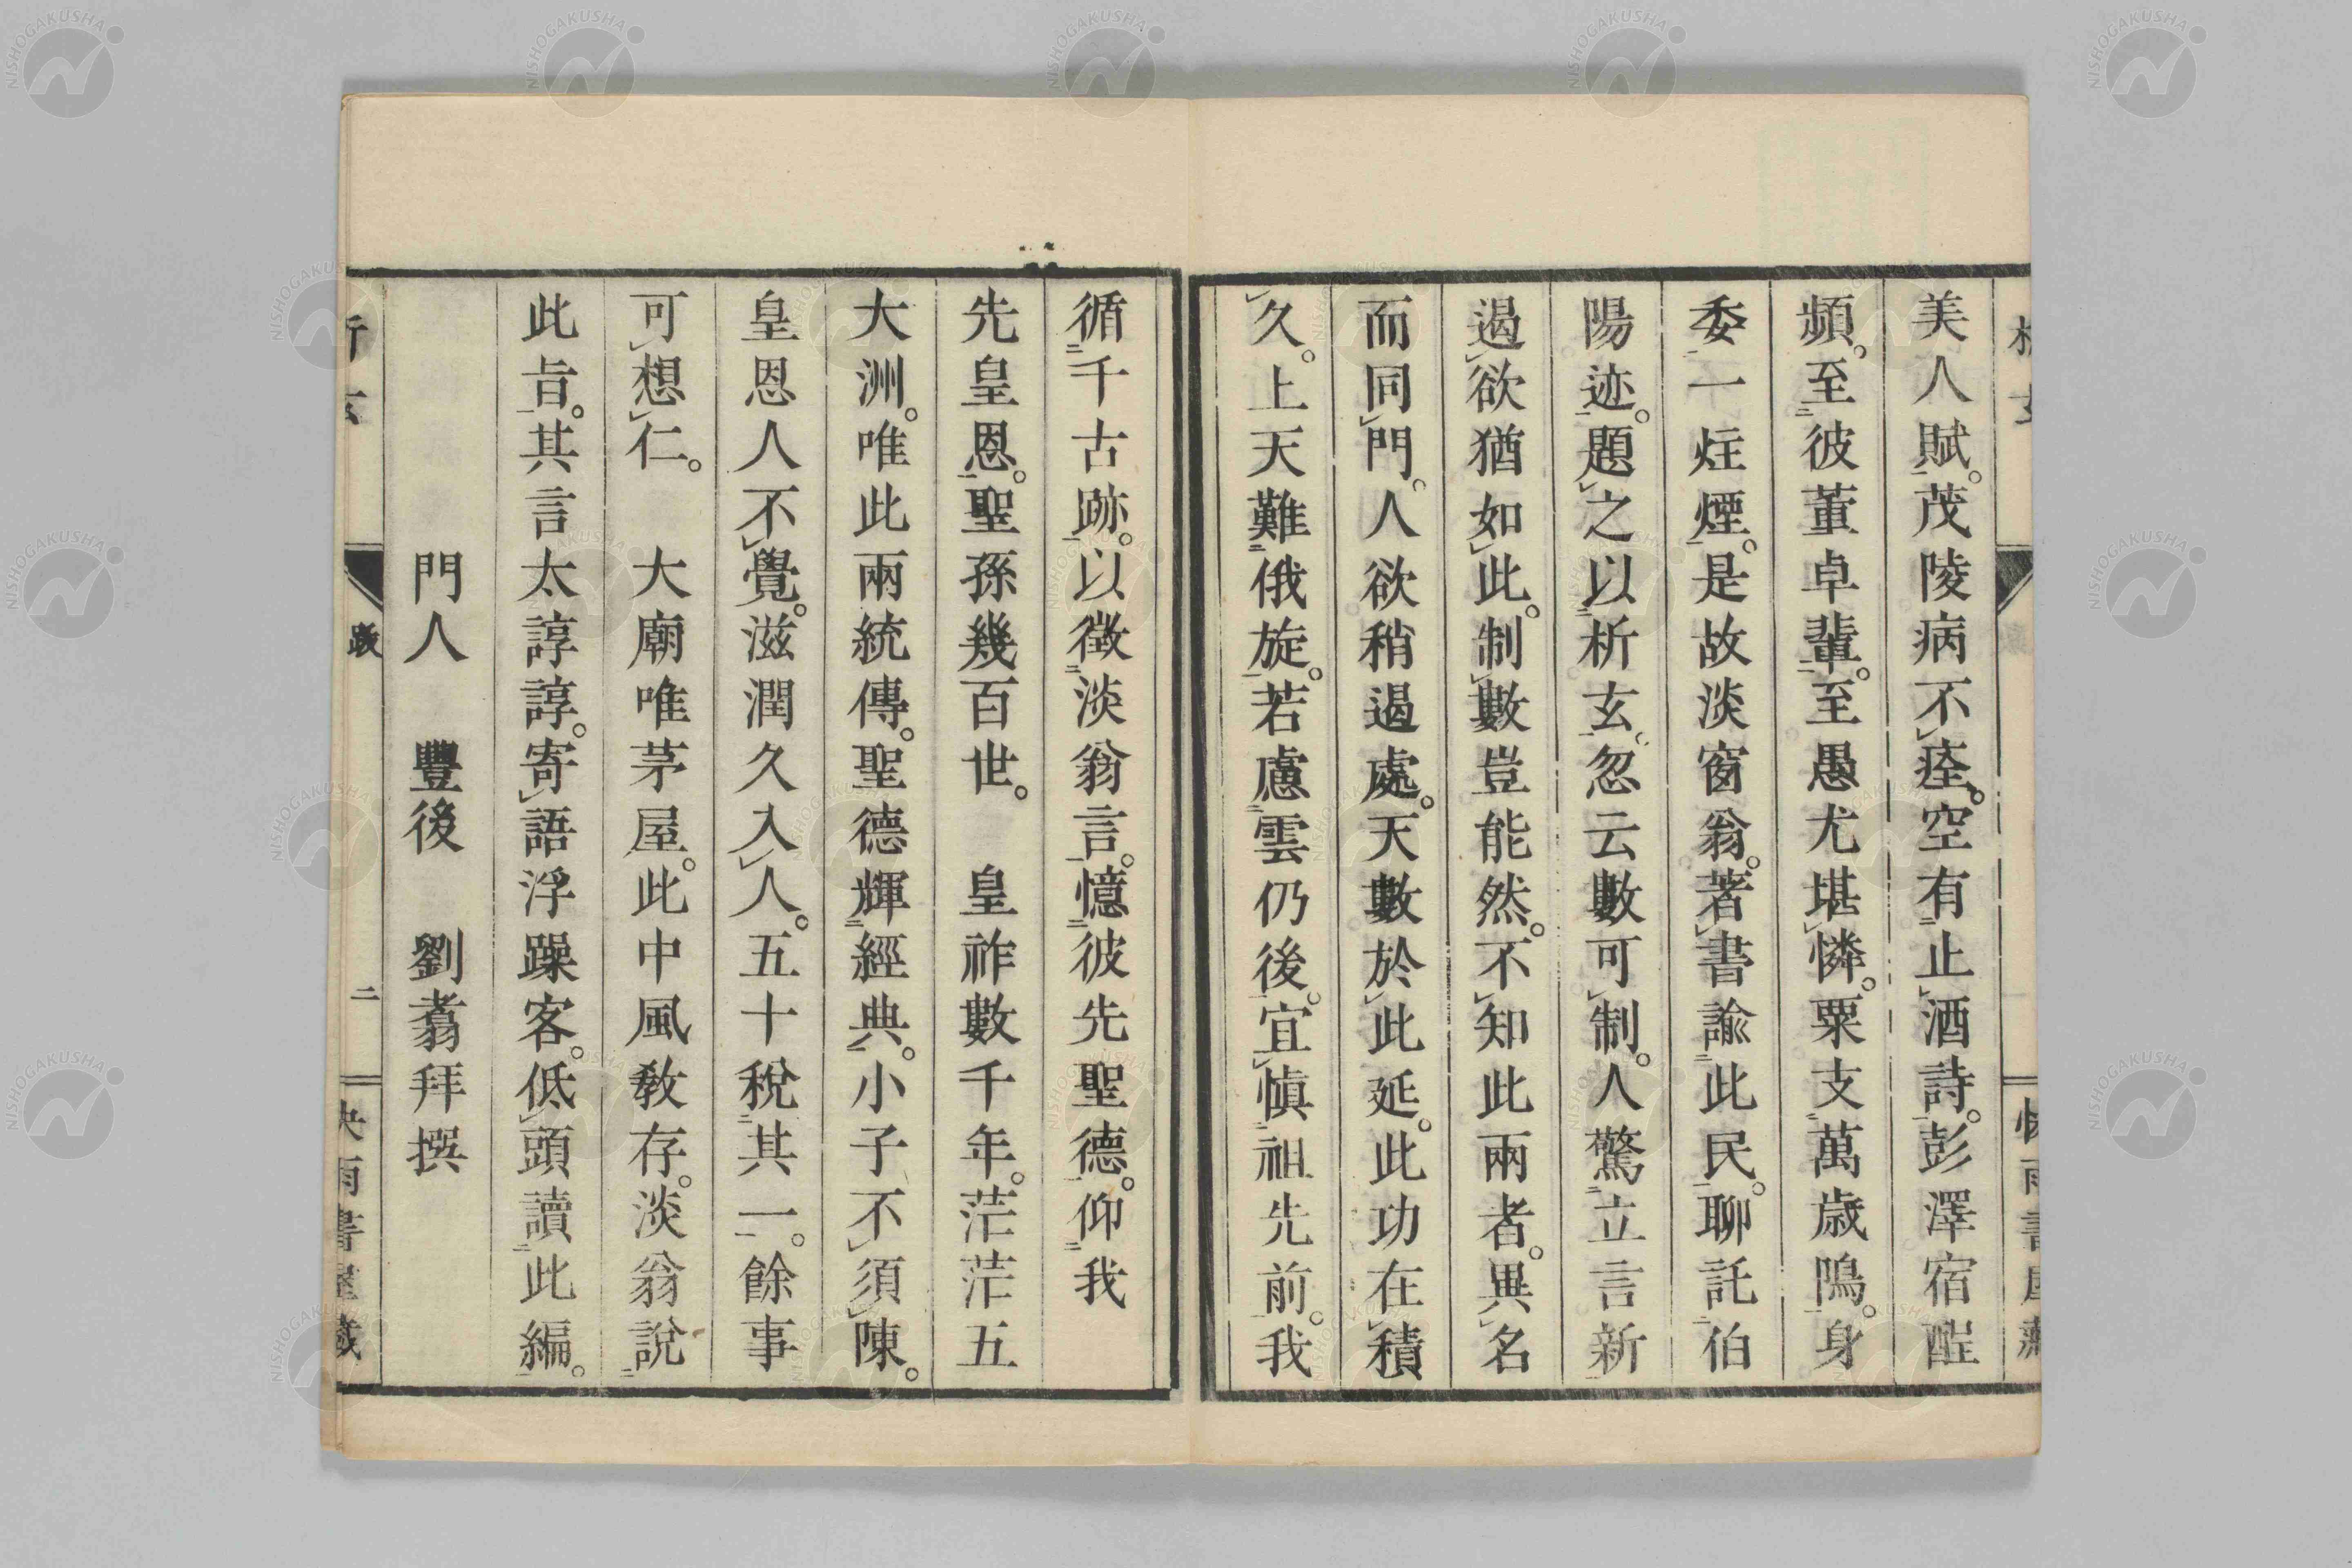 美人賦。茂陵病不痊。空有止酒詩。彭澤宿酲
頻。至彼董卓輩。至愚尤堪憐。粟支萬歳隖。身
委一炷煙。是故淡窗翁。著書諭此民。聊託伯
陽迹。題之以析玄。忽云數可制。人驚立言新
遏欲猶如此。制數豈能然。不知此兩者。異名
而同門。人欲稍遏處。天數於此延。此功在積
久。上天難俄旋。若慮雲仍後。宜愼祖先前。我
循千古跡。以徵淡翁言。憶彼先聖德。仰我
先皇恩。聖孫幾百世。 皇祚數千年。茫茫五
大洲。唯此兩統傳。聖德輝經典。小子不須陳。
皇恩人不覺。滋潤久入人。五十稅其一。餘事
可想仁。 大廟唯茅屋。此中風敎存。淡翁說
此旨。其言太諄諄。寄語浮躁客。低頭讀此編。
門人 豐後 劉翥拜撰
跋
二
NISHOGAKUSHA